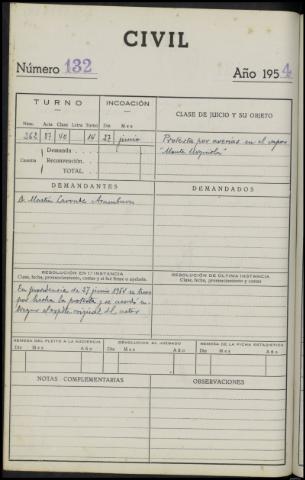 CIVIL
Número 132 Año 1954
TURNO INCOACIÓN CLASE DE JUICIO Y SU OBJETO
Núm. Acta Clase Letra Tomo Día Mes
262 87 40 14 27 junio Protesta por averias en el vapor
"Monte Urquiola"
Cuantía Demanda
Reconvención
TOTAL
DEMANDANTES DEMANDADOS
D. Martín Aramburu
RESOLUCIÓN EN 1.ª INSTANCIA RESOLUCIÓN DE ÚLTIMA INSTANCIA
Clase, fecha, pronunciamiento, costas y si fué firme o apelada. Clase, fecha, pronunciamiento y costas
En providencia de 27 junio 1954 se tuvo
por hecha la protesta y se acordó en-
tregar el expte. original al actor
REMESA DEL PLEITO A LA AUDIENCIA DEVOLUCIÓN AL JUZGADO REMESA DE LA FICHA ESTADÍSTICA
Día Mes Año Día Mes Año Día Mes Año
NOTAS COMPLEMENTARIAS OBSERVACIONES